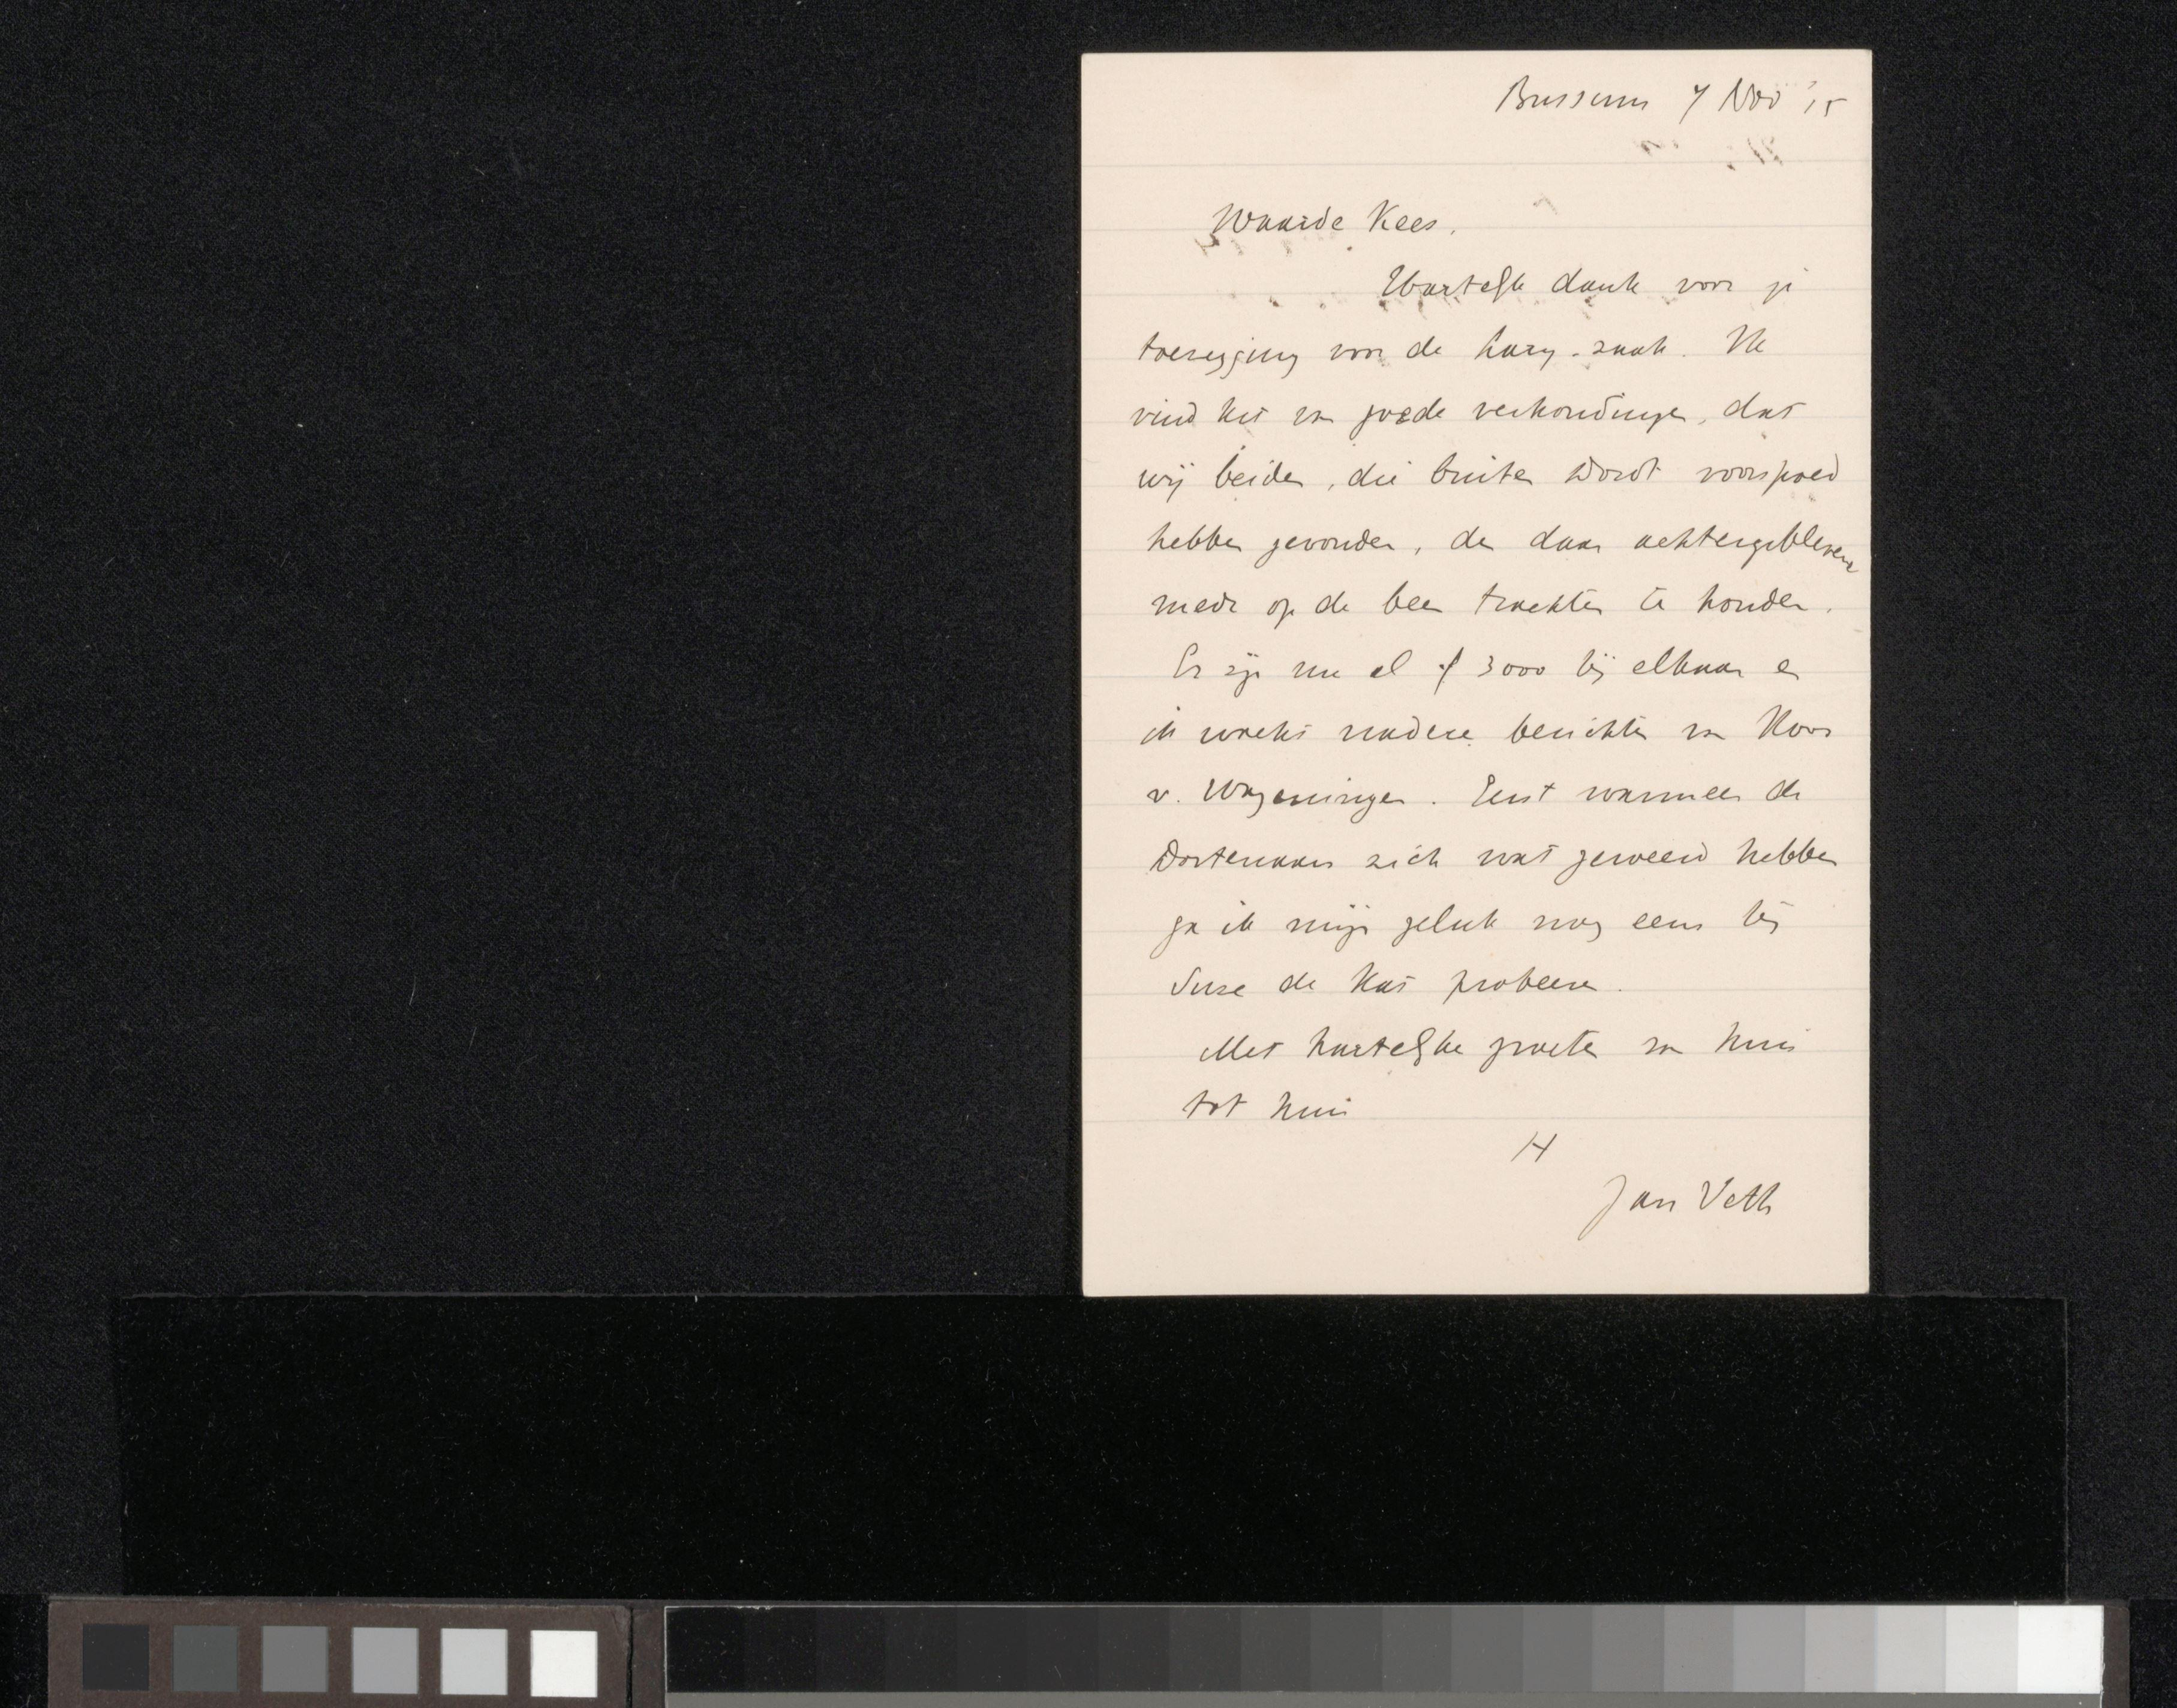 Bussum 7 Nov '15
Waarde Kees,
Hartelijk dank voor je
toezegging voor de Lary-zaak. Ik
vind het in goede verhoudingen, dat
wij beiden, die buiten Dordt voorspoed
hebben gevonden, den daar achtergeblevene
mede op de been trachten te houden.
Er zijn nu al ƒ 3000 bij elkaar en
ik wacht nadere berichten van Koos
v. Wageningen. Eerst wanneer de
Dortenaars zich wat geweerd hebben
ga ik mijn geluk nog eens bij
Suze de Kat probeeren.
Met hartelijke groeten van huis
tot huis
Jan Veth